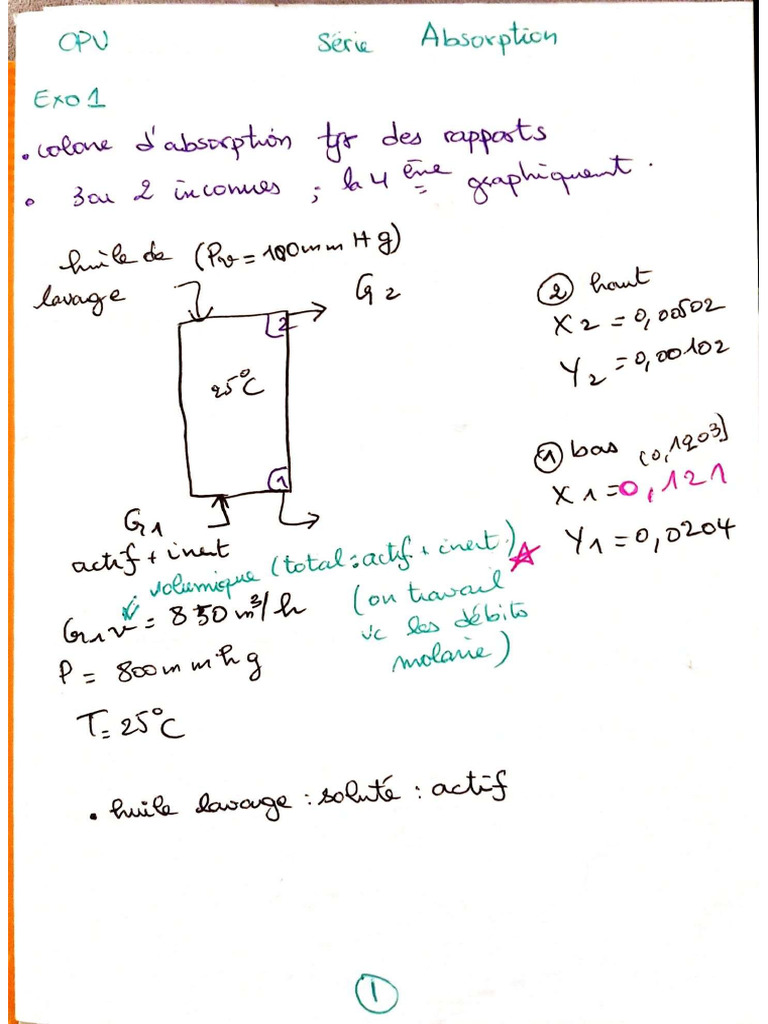 OPU Série Absorption
Exo 1
• colone d'absorption tjr des rapports
• 3 ou 2 inconnues ; la 4 ème graphiquent.
huile de (Pv = 100mm Hg)
lavage
G2
2
25°C
1
G1
actif + inert
② haut
X2 = 0,00502
Y2 = 0,00102
① bas (0,1203)
X1 = 0,121
Y1 = 0,0204
volumique (total : actif + inert)
G1v = 850 m³/h
(on travail
vc les débits
molarie)
P = 800mm hg
T = 25°C
• huile lavage : soluté : actif
1